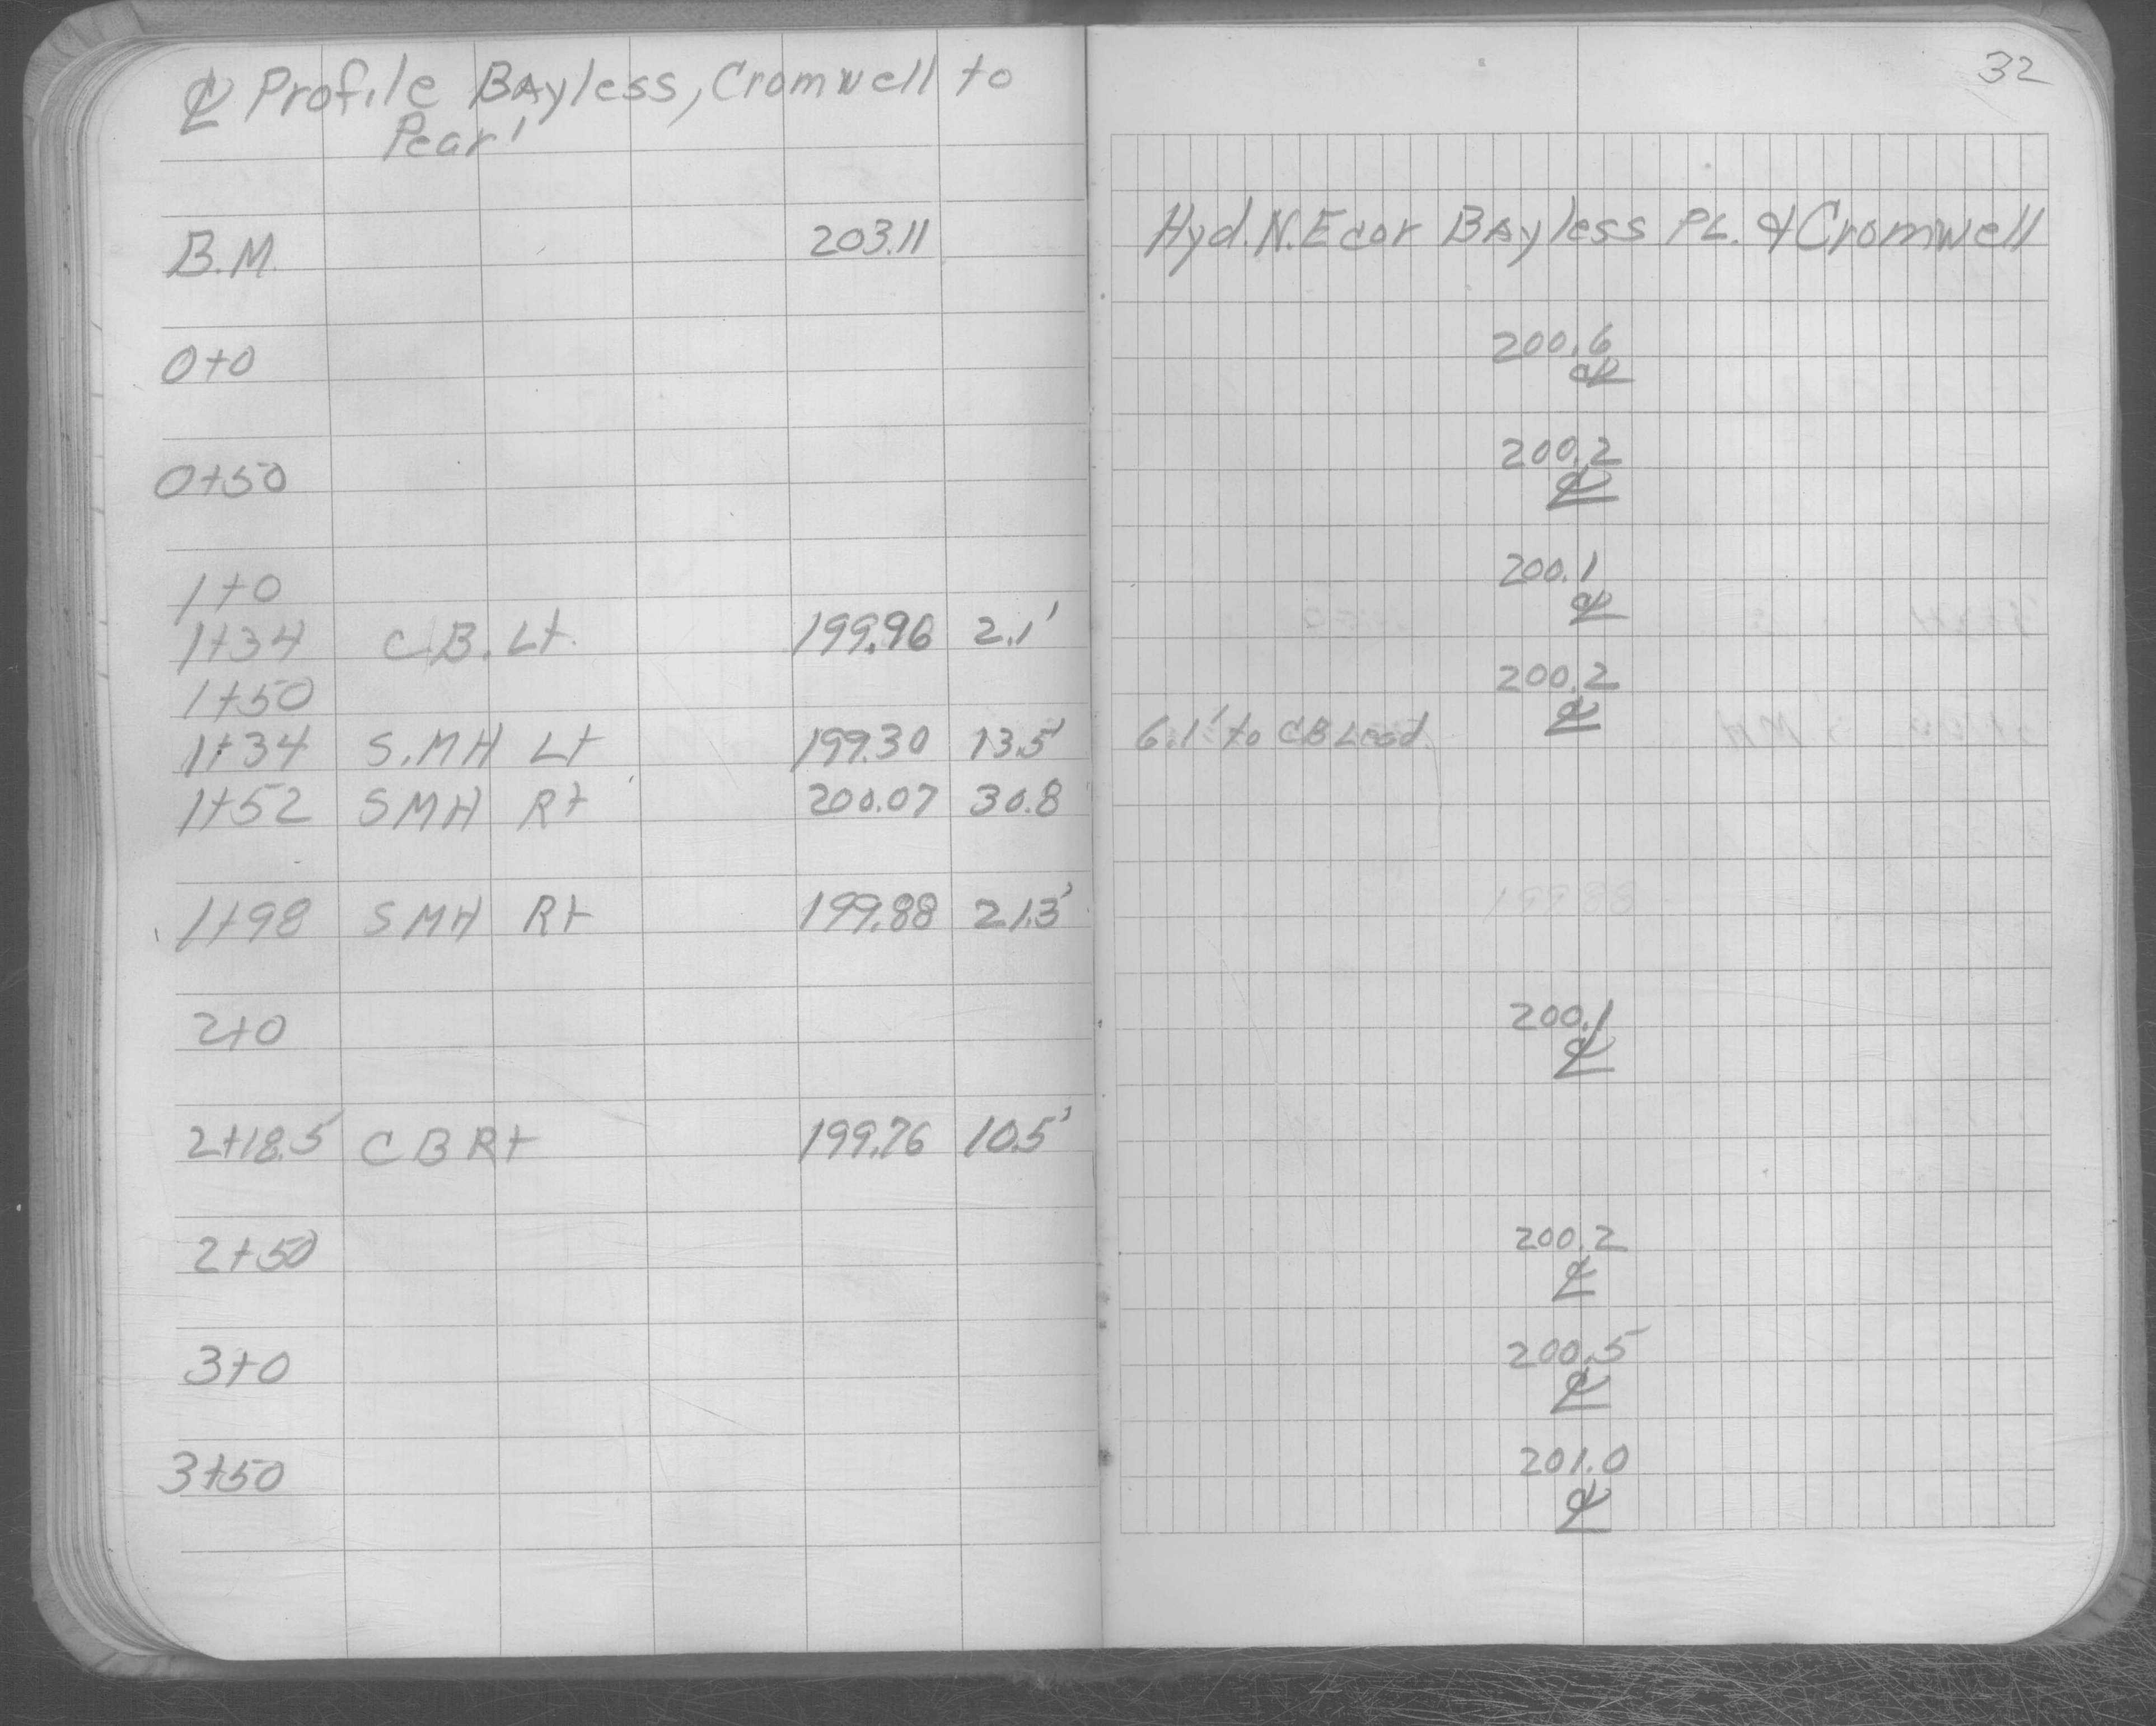 ℄ Profile Bayless, Cromwell to
Pearl
32
B.M. 203.11 Hyd. N.E cor Bayless PL. & Cromwell
0+0 200.6 ℄
0+50 200.2 ℄
1+0 200.1 ℄
1+34 C.B. Lt. 199.96 2.1'
1+50 200.2 ℄
1+34 S.MH Lt 199.30 13.5' 6.1' to CB Lead
1+52 SMH Rt 200.07 30.8
1+98 SMH Rt 199.88 21.3'
2+0 200.1 ℄
2+18.5 CB Rt 199.76 10.5'
2+50 200.2 ℄
3+0 200.5 ℄
3+50 201.0 ℄